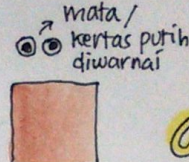 mata/
kertas putih
diwarnai